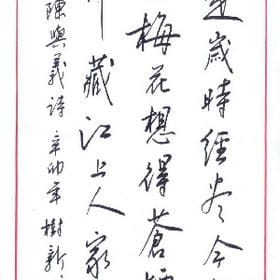 歲時經
梅花想得蒼
藏江上人家
陳與義詩 辛卯年 樹新